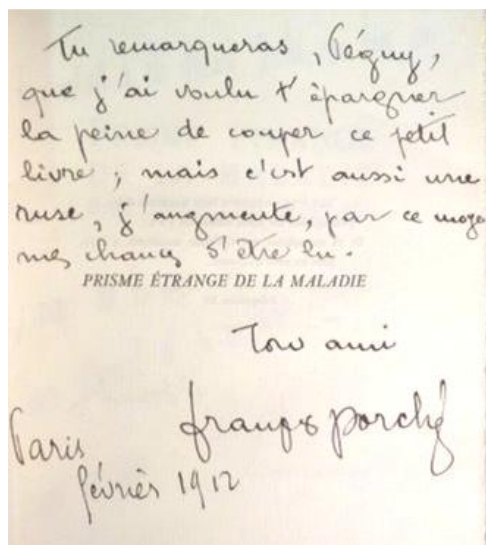 Tu remarqueras, Péguy,
que j'ai voulu t'épargner
la peine de couper ce petit
livre ; mais c'est aussi une
ruse, j'augmente, par ce moye
mes chances d'être lu.
PRISME ÉTRANGE DE LA MALADIE
Ton ami
françois porché
Paris
février 1912